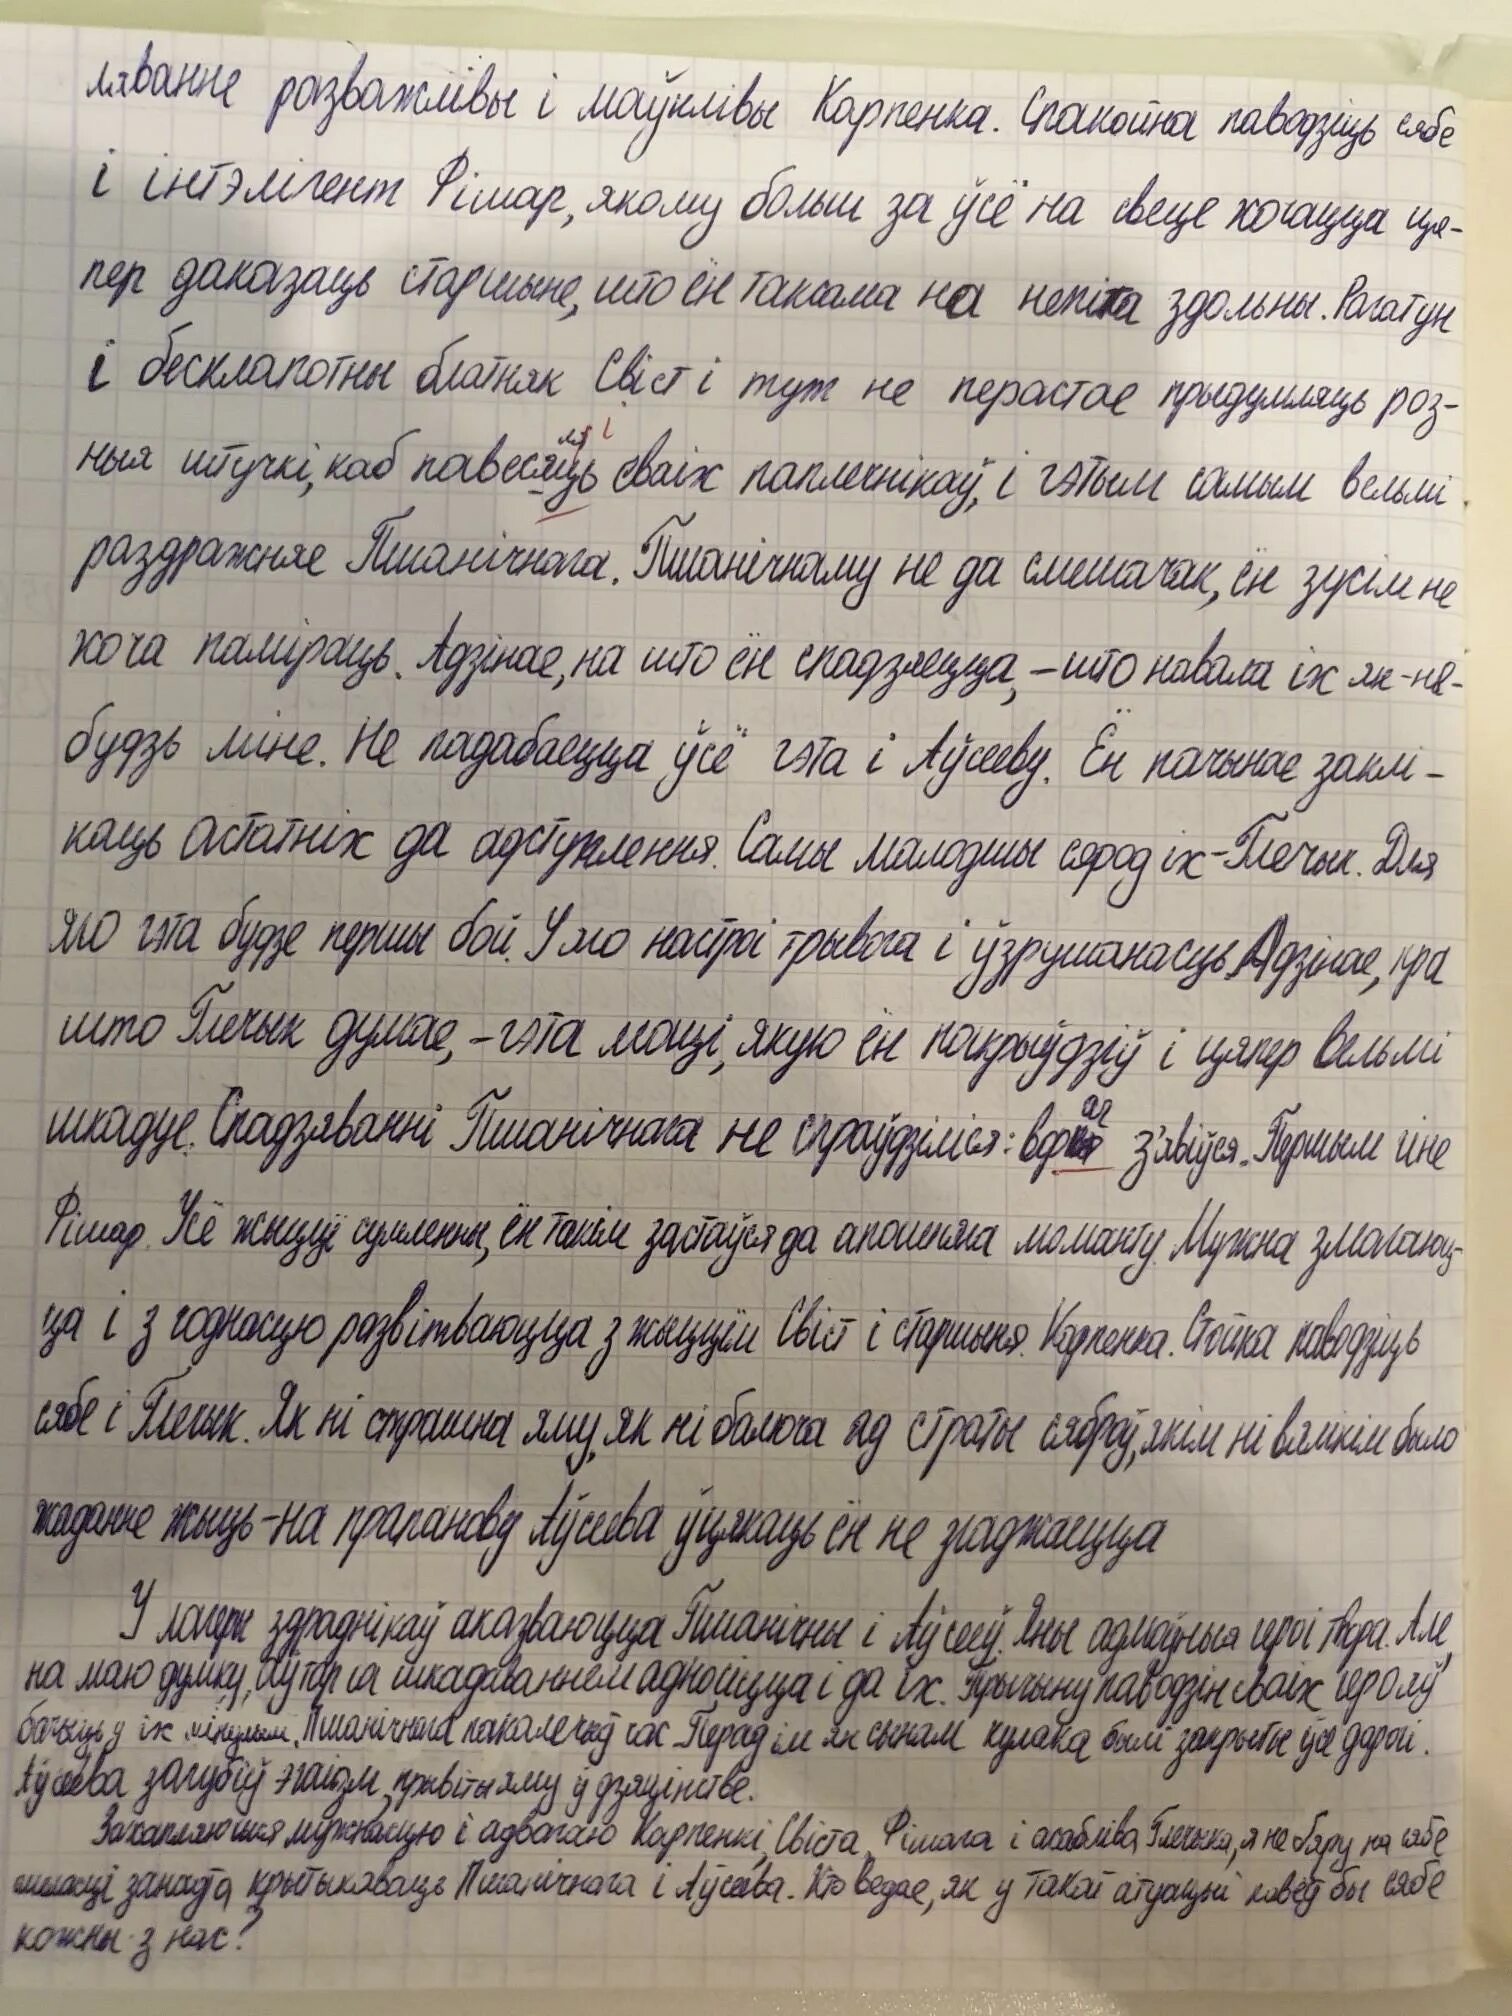 ляванне разважлівы і маўклівы Карпенка. Спакойна паводзіць сябе
і інтэлігент Фішар, якому больш за ўсё на свеце хочацца ця-
пер даказаць старшыне, што ён таксама на нешта здольны. Рагатун
і бесклапотны блатняк Свіст і тут не перастае прыдумляць роз-
ныя штучкі, каб павесяліць сваіх паплечнікаў, і гэтым самым вельмі
раздражняе Пшанічнага. Пшанічнаму не да смешачак, ён зусім не
хоча паміраць. Адзінае, на што ён спадзяецца, – што навала іх як-не-
будзь міне. Не падабаецца ўсё гэта і Аўсееву. Ён пачынае заклі-
каць астатніх да адступлення. Самы малодшы сярод іх – Глечык. Для
яго гэта будзе першы бой. У яго настроі трывога і ўзрушанасць. Адзінае, пра
што Глечык думае, – гэта маці, якую ён пакрыўдзіў і цяпер вельмі
шкадуе. Спадзяванні Пшанічнага не спраўдзіліся: з'явіўся. Першым гіне
Фішар. Усё жыццё сумленны, ён такім застаўся да апошняга моманту. Мужна змагаюц-
ца і з годнасцю развітваюцца з жыццём Свіст і старшыня Карпенка. Стойка паводзіць
сябе і Глечык. Як ні страшна яму, як ні балюча ад страты сяброў, якім ні вялікім было
жаданне жыць – на прапанову Аўсеева ўцякаць ён не згаджаецца
У лагеры здраднікаў аказваюцца Пшанічны і Аўсееў. Яны адмоўныя героі твора. Але,
на маю думку, аўтар са шкадаваннем адносіцца і да іх. Прычыну паводзін сваіх герояў
бачыць у іх мінулым. Пшанічнага пакалечыў час. Перад ім як сынам кулака былі закрыты ўсе дарогі.
Аўсеева загубіў эгаізм, прывіты яму ў дзяцінстве.
Захапляючыся мужнасцю і адвагаю Карпенкі, Свіста, Фішара і асабліва Глечыка, я не бяру на сябе
смеласці занадта крытыкаваць Пшанічнага і Аўсеева. Хто ведае, як у такой сітуацыі павёў бы сябе
кожны з нас?